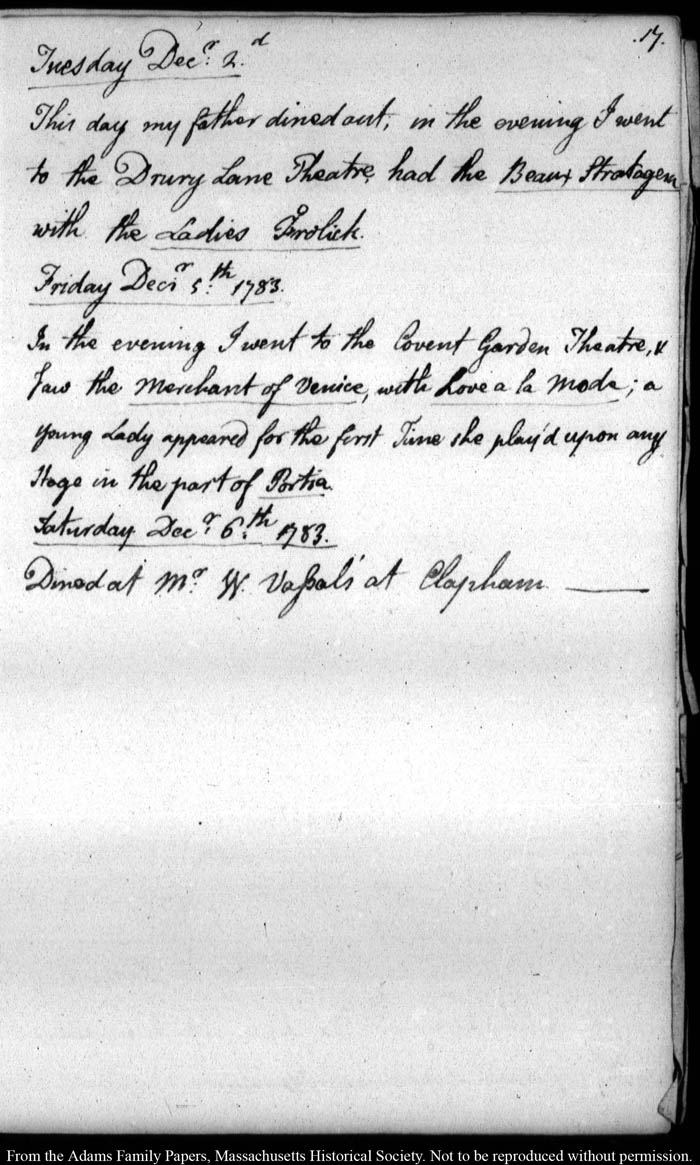 17.
Tuesday Decr. 2.d
This day my father dined out, in the evening I went
to the Drury Lane Theatre, had the Beaux Stratagem
with the Ladies Frolick.
Friday Decr. 5.th 1783.
In the evening I went to the Covent Garden Theatre, &
saw the Merchant of Venice, with Love a la Mode; a
young Lady appeared for the first Time she play'd upon any
stage in the part of Portia.
Saturday Decr. 6.th 1783.
Dined at Mr. W. Vaſsals' at Clapham. ———
From the Adams Family Papers, Massachusetts Historical Society. Not to be reproduced without permission.